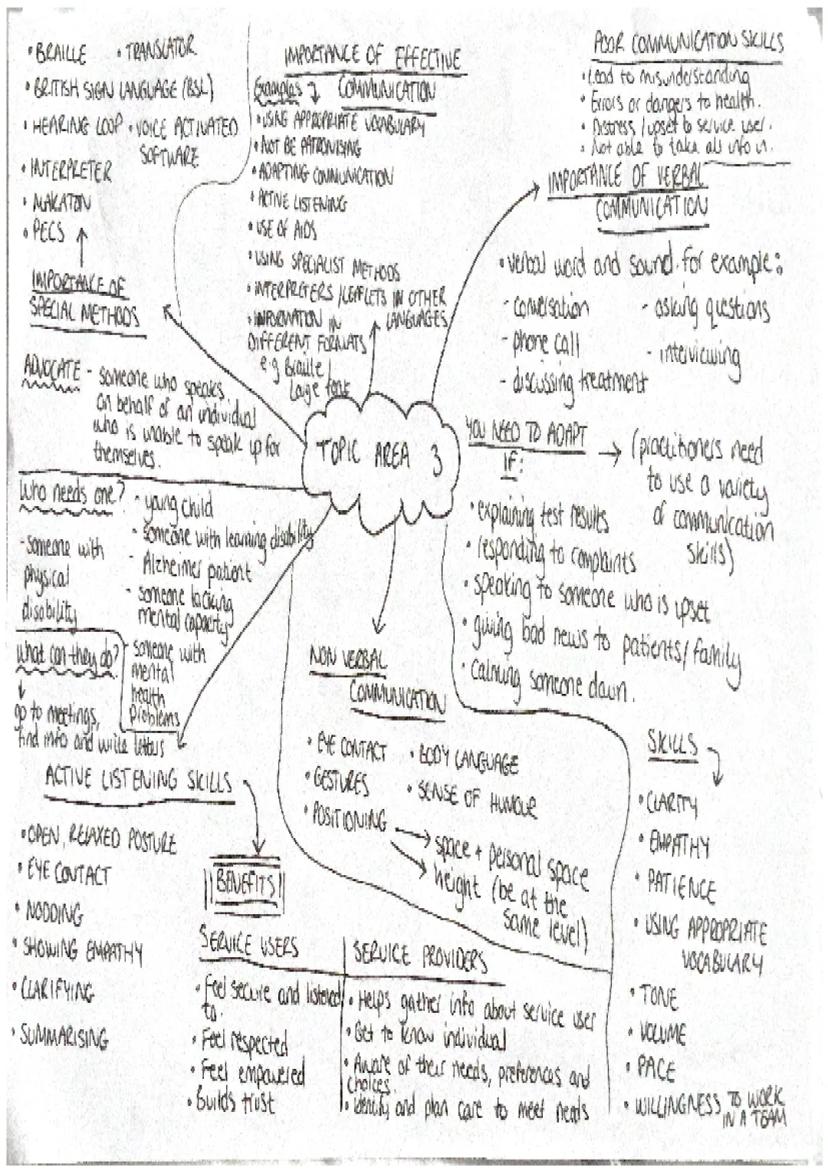 • BRAILLE • TRANSLATOR
• BRITISH SIGN LANGUAGE (BSL)
• HEARING LOOP • VOICE ACTIVATED
SOFTWARE
• INTERPRETER
• MAKATON
• PECS
IMPORTANCE OF
SPECIAL METHODS
IMPORTANCE OF EFFECTIVE
COMMUNICATION
Examples
• USING APPROPRIATE VOCABULARY
• NOT BE PATRONISING
• ADAPTING COMMUNICATION
• ACTIVE LISTENING
• USE OF AIDS
• USING SPECIALIST METHODS
• INTERPRETERS / LEAFLETS IN OTHER
LANGUAGES
• INFORMATION IN
DIFFERENT FORMATS
e.g Braille/
Large font
POOR COMMUNICATION SKILLS
• Lead to misunderstanding
• Errors or dangers to health.
• Distress/upset to service user.
• Not able to take all info in.
IMPORTANCE OF VERBAL
COMMUNICATION
• verbal word and sound. for example:
- conversation
- phone call
- discussing treatment
- asking questions
- interviewing
ADVOCATE - someone who speaks
on behalf of an individual
who is unable to speak up for
themselves.
TOPIC AREA 3
YOU NEED TO ADAPT
IF:
(practitioners need
to use a variety
of communication
skills)
• explaining test results
• responding to complaints
• speaking to someone who is upset
• giving bad news to patients/family
• calming someone down.
Who needs one?
- young child
- someone with learning disability
- Alzheimer patient
- someone lacking
mental capacity
- someone with
mental
health
problems
- someone with
physical
disability
What can they do?
go to meetings,
find info and write letters
NON VERBAL
COMMUNICATION
• EYE CONTACT • BODY LANGUAGE
• GESTURES • SENSE OF HUMOUR
• POSITIONING
space + personal space
height (be at the
same level)
ACTIVE LISTENING SKILLS
• OPEN, RELAXED POSTURE
• EYE CONTACT
• NODDING
• SHOWING EMPATHY
• CLARIFYING
• SUMMARISING
BENEFITS
SERVICE USERS
• Feel secure and listened
to.
• Feel respected
• Feel empowered
• Builds trust
SERVICE PROVIDERS
• Helps gather info about service user
• Get to know individual
• Aware of their needs, preferences and
choices.
• Identify and plan care to meet needs
SKILLS
• CLARITY
• EMPATHY
• PATIENCE
• USING APPROPRIATE
VOCABULARY
• TONE
• VOLUME
• PACE
• WILLINGNESS TO WORK
IN A TEAM